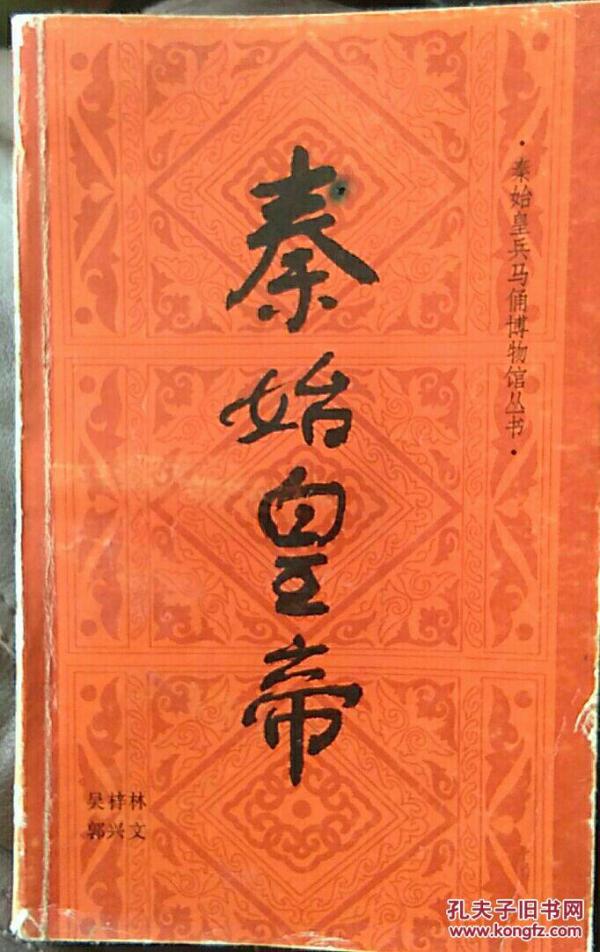 ·秦始皇兵马俑博物馆丛书·
秦始皇帝
吴梓林
郭兴文
孔夫子旧书网
www.kongfz.com